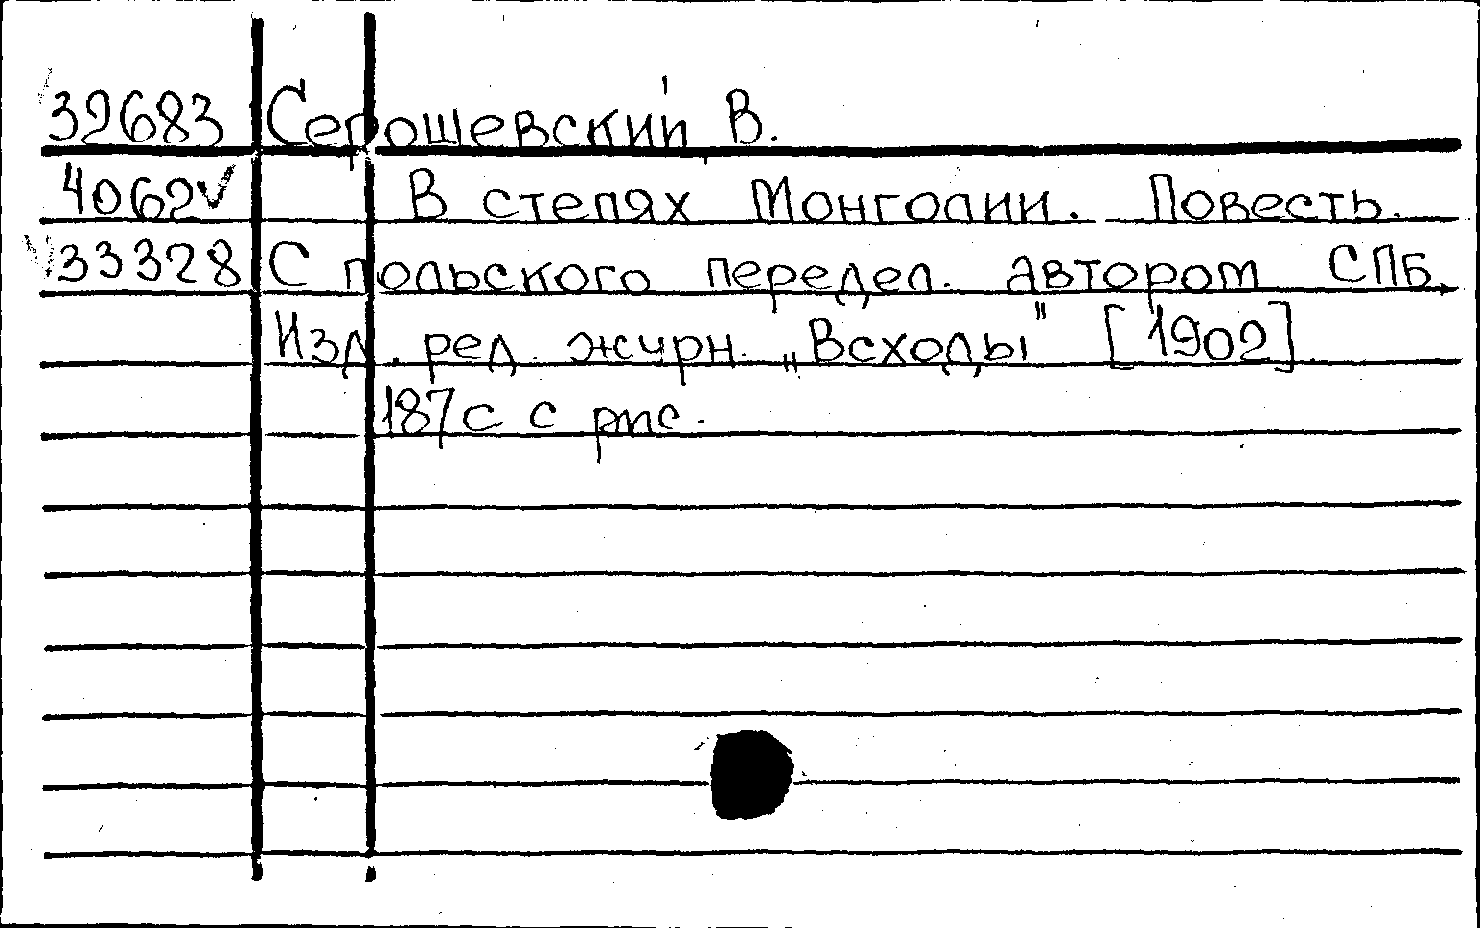 32683 Серошевский В.
4062 В степях Монголии. Повесть.
33328 С польского передел. автором СПБ.
Изд. ред. журн. „Всходы" [1902]
187 с с рис.